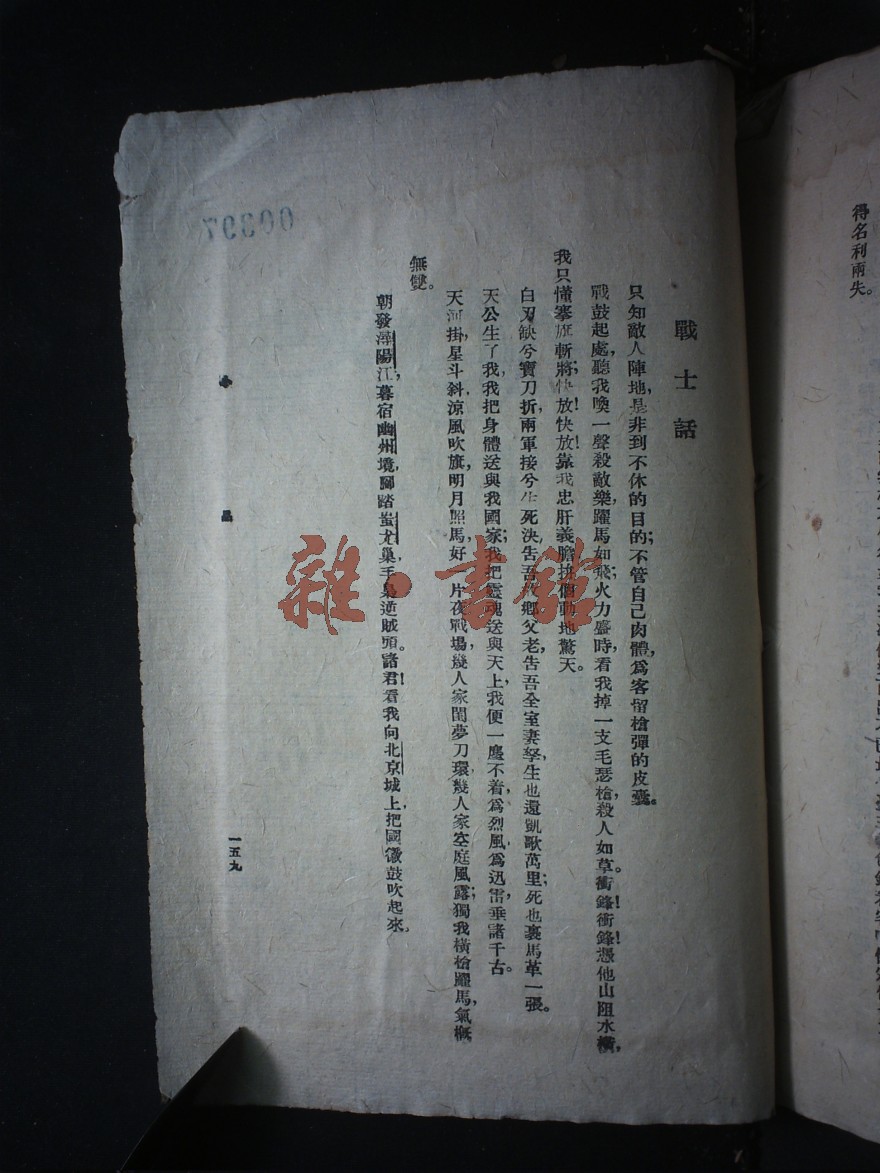 得名利兩失。
戰士話
只知敵人陣地,是非到不休的目的;不管自己肉體,爲客留槍彈的皮囊。
戰鼓起處,聽我喚一聲殺敵樂,躍馬如飛;火力盛時,看我掉一支毛瑟槍,殺人如草。衝鋒!衝鋒!憑他山阻水橫,
我只懂搴旗斬將;快放!快放!靠我忠肝義膽,拚個動地驚天。
白刃缺兮寶刀折,兩軍接兮生死決,告吾故鄉父老,告吾全室妻孥,生也還凱歌萬里;死也裹馬革一張。
天公生了我,我把身體送與我國家;我把靈魂送與天上,我便一塵不着,爲烈風,爲迅雷,垂諸千古。
天河掛,星斗斜,涼風吹旗,明月照馬,好一片夜戰場,幾人家閨夢刀環,幾人家空庭風露;獨我橫槍躍馬,氣概
無雙。
朝發潯陽江,暮宿幽州境,脚踏蚩尤巢,手梟逆賊頭。諸君!看我向北京城上,把國徽鼓吹起來。
一五九
00397
雜·書館